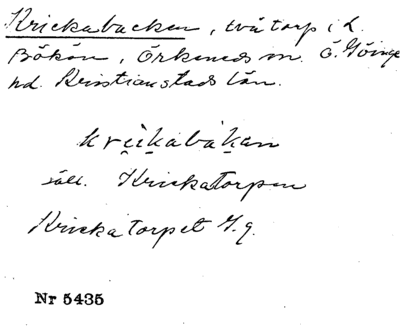 Krickabacken, två torp i L.
Bökön, Örkeneds sn. Ö. Göinge
hd. Kristianstads län.
krikabakan
säll. Krickatorpen
Krickatorpet J.q.
Nr 5435